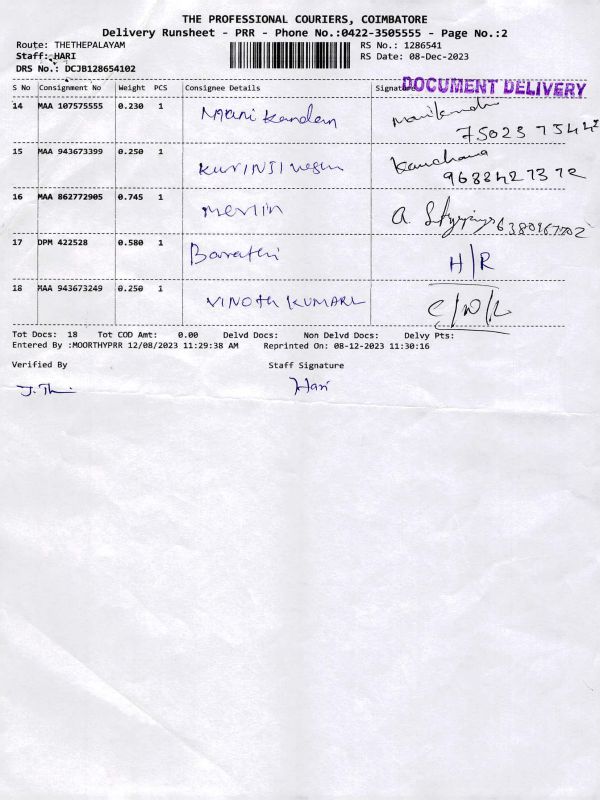 THE PROFESSIONAL COURIERS, COIMBATORE
Delivery Runsheet - PRR - Phone No.:0422-3505555 - Page No.:2
Route: THETHEPALAYAM RS No.: 1286541
Staff: HARI RS Date: 08-Dec-2023
DRS No.: DCJB128654102
DOCUMENT DELIVERY
S No Consignment No Weight PCS Consignee Details Signature
14 MAA 107575555 0.230 1 Mani kandan Manikandan
75023 75442
15 MAA 943673399 0.250 1 KURINJI Kanchana
9688427372
16 MAA 862772905 0.745 1 merlin A.
6380967702
17 DPM 422528 0.580 1 Barathi H/R
18 MAA 943673249 0.250 1 VINOTH KUMAR C/W/L
Tot Docs: 18 Tot COD Amt: 0.00 Delvd Docs: Non Delvd Docs: Delvy Pts:
Entered By :MOORTHYPRR 12/08/2023 11:29:38 AM Reprinted On: 08-12-2023 11:30:16
Verified By Staff Signature
Hari